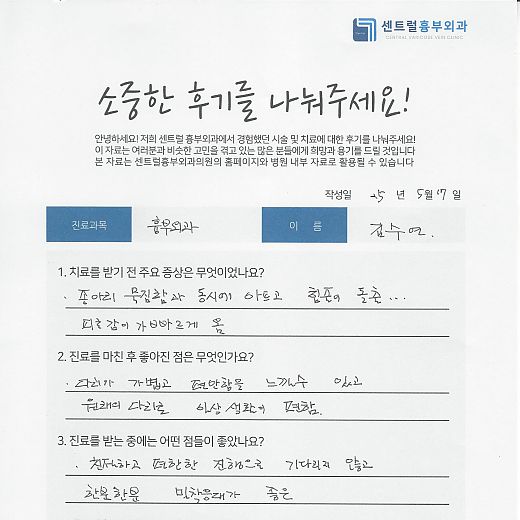 센트럴흉부외과
CENTRAL VARICOSE VEIN CLINIC
소중한 후기를 나눠주세요!
안녕하세요! 저희 센트럴 흉부외과에서 경험했던 시술 및 치료에 대한 후기를 나눠주세요!
이 자료는 여러분과 비슷한 고민을 겪고 있는 많은 분들에게 희망과 용기를 드릴 것입니다
본 자료는 센트럴흉부외과의원의 홈페이지와 병원 내부 자료로 활용될 수 있습니다
작성일 25 년 5 월 17 일
진료과목 흉부외과 이 름 김수연.
1. 치료를 받기 전 주요 증상은 무엇이었나요?
. 종아리 묵직함과 동시에 아프고 힘줄이 돌출...
피로감이 가빠르게 옴
2. 진료를 마친 후 좋아진 점은 무엇인가요?
. 다리가 가볍고 편안함을 느낄수 있고
원래의 다리로 일상생활이 편함.
3. 진료를 받는 중에는 어떤 점들이 좋았나요?
. 친절하고 편안한 진행으로 기다리지 않고
한분한분 밀착응대가 좋은